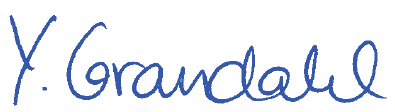 Y. Grandahl